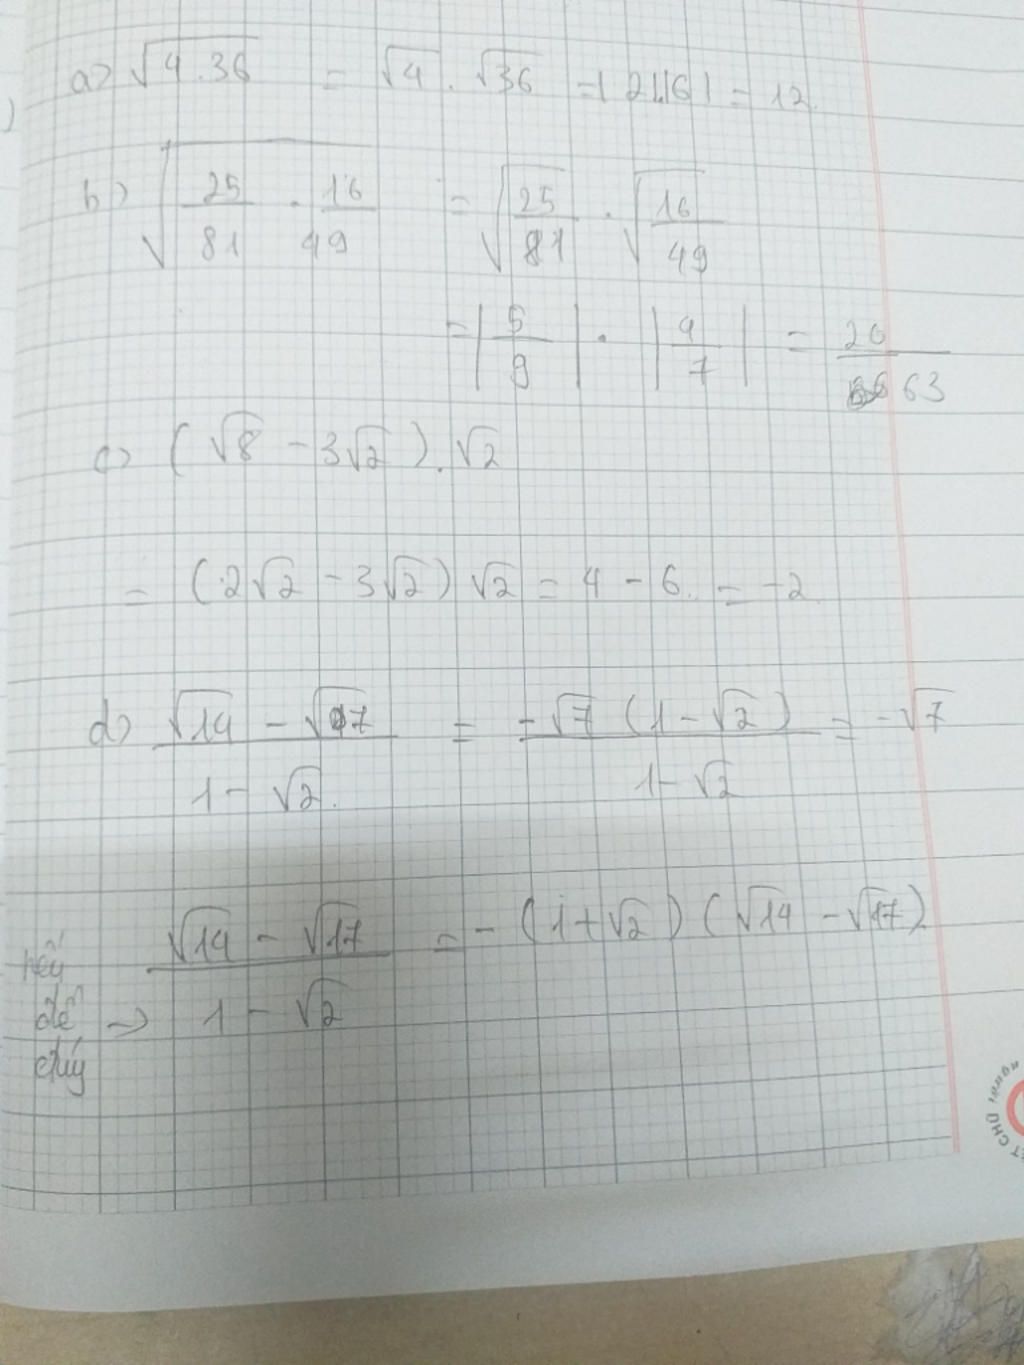 a) √4.36 = √4 . √36 = |2|.|6| = 12
b) √25/81 . 16/49 = √25/81 . √16/49
= |5/9| . |4/7| = 20/63
c) (√8 - 3√2).√2
= (2√2 - 3√2) √2 = 4 - 6 = -2
d) √14 - √7 / 1 - √2 = -√7 (1 - √2) / 1 - √2 = -√7
nếu đề đúng → √14 - √17 / 1 - √2 = - (1 + √2) (√14 - √17)